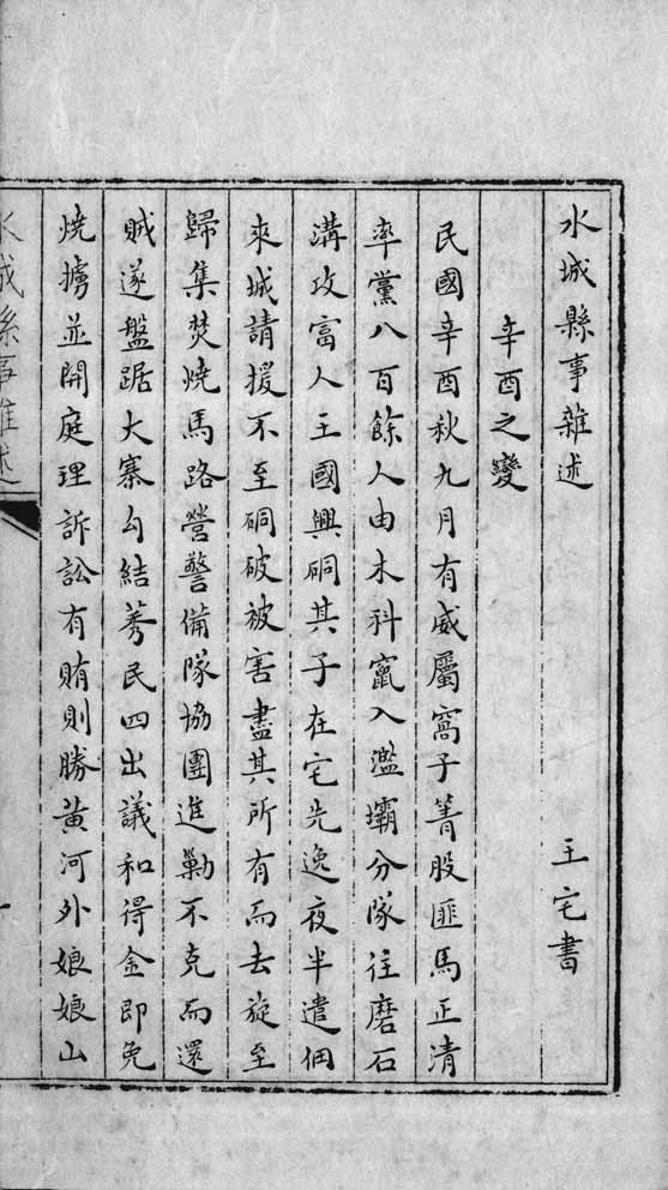 水城縣事雜述 王宅書
辛酉之變
民國辛酉秋九月有威屬窩子箐股匪馬正清
率黨八百餘人由木科竄入濫壩分隊往磨石
溝攻富人王國興硐其子在宅先逸夜半遣佃
來城請援不至硐破被害盡其所有而去旋至
歸集焚燒馬路營警備隊協團進勦不克而還
賊遂盤踞大寨勾結莠民四出議和得金即免
燒擄並開庭理訴訟有賄則勝黃河外娘娘山
水城縣事雜述
一